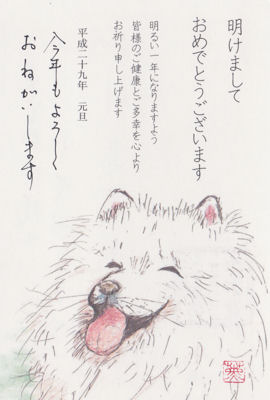 明けまして
おめでとうございます
明るい一年になりますよう
皆様のご健康とご多幸を心より
お祈り申し上げます
平成二十九年 元旦
今年もよろしく
おねがいします